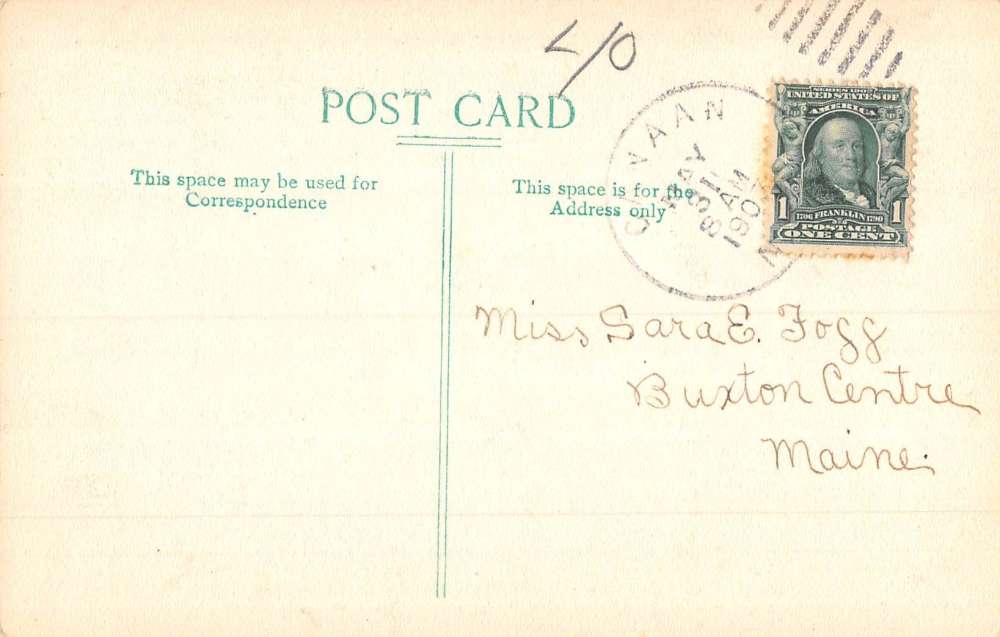 L/O
POST CARD
This space may be used for
Correspondence
This space is for the
Address only
CANAAN
MAY
31
8 AM
190
N
SERIES 1902
UNITED STATES OF
AMERICA
1 1706 FRANKLIN 1790 1
POSTAGE
ONE CENT
Miss Sara E. Fogg
Buxton Centre
Maine.